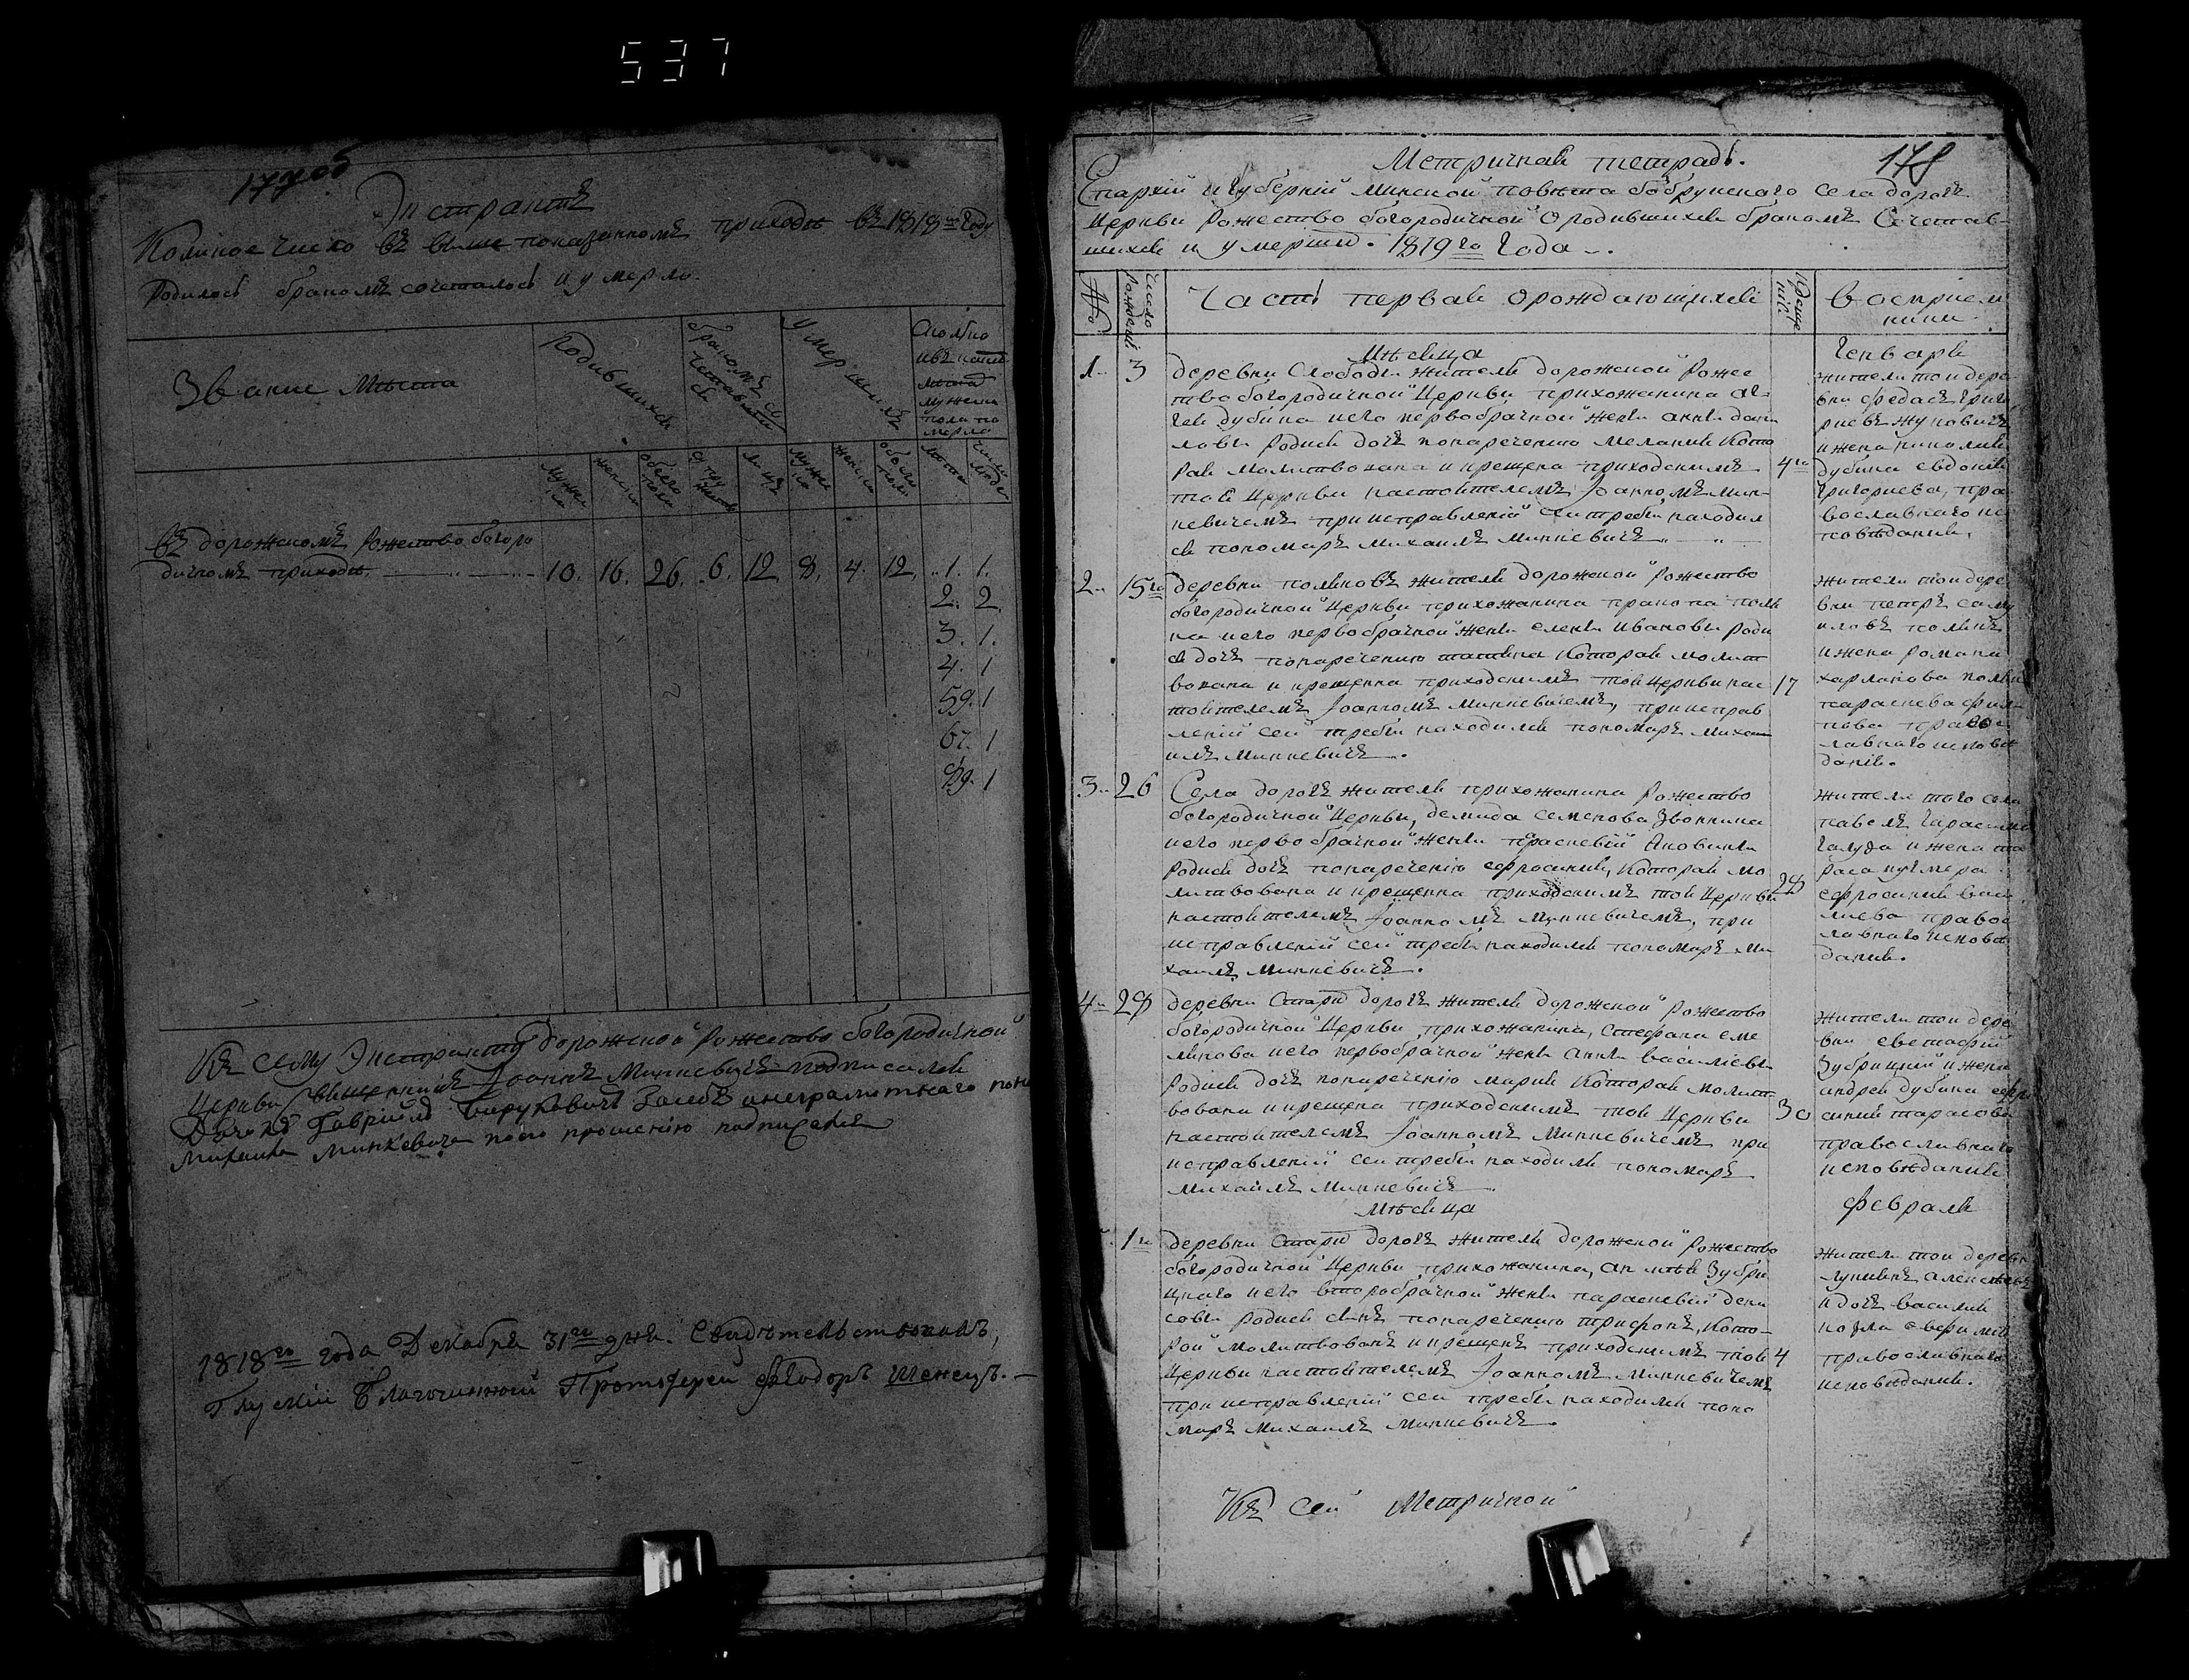 537
177 об
Экстрактъ
Коликое число въ выше показанномъ приходѣ въ 1818мъ Году
Родилось бракомъ сочеталось и умерло.
Звание Мѣста
Родившихся
бракомъ со четавшихся
Умершихъ
мужеска
женска
обоего пола
лицъ
мужеска
женска
обоего пола
лѣта
число людей
Въ дорожскомъ Рожество богоро
дичномъ приходѣ. 10. 16. 26. 6. 12. 8. 4. 12. 1. 1.
2. 2.
3. 1.
4. 1
59. 1
67. 1
89. 1
Къ сему Экстракту дорожской Рожество богородичной
Церкви Священникъ Іоаннъ Минкевичъ подписался
Дьячокъ Гавріилъ за себя и неграмотнаго поно
Михаила Минкевича по его прошенію подписался
1818го года Декабря 31го дня. Свидѣтельствовалъ,
Глускій Благочинный Протоіерей Ѳеодоръ Шенецъ.
178
Метричная тетрадь.
Епархій и Губерній минской повѣта бобруйского села дорогъ
Церкви Рожество богородичной О родившихся бракомъ Сочетав
шихся и умершихъ. 1819го Года
No
Число рождений
Часть первая о рождающихся
Крещения
Восприем
ники
Мѣсяца
Генваря
1. 3 деревни Слободы жителя дорожской Рожес
тво богородичной Церкви прихожанина
дубина и его первобрачной жены анны дани
ловы родися дочь по наречению мелания Кото
рая молитвована и крещена приходскимъ 4го
тоя Церкви настоятелемъ Іоанномъ мин
кевичемъ при исправленій сей требы находил
ся пономарь михаилъ минкевичъ
жители той дере
вни
жуковичъ
и жена
дубина евдокия
Григориева, пра
вославнаго ис
поведания.
2. 15го деревни поликовъ жителя дорожской Рожество
богородичной Церкви прихожанина прокопа поли
ка и его первобрачной жены елены ивановы роди
ся дочь по наречению татияна Которая молит
вована и крещенна приходскимъ тоя Церкви нас 17
тоятелемъ Іоанномъ минкевичемъ, при исправ
леній сей требы находился пономарь михаи
илъ минкевичъ.
жители той дере
вни петръ саму
иловъ поликъ
и жена романа
харланова полика
параскева фили
пова правос
лавнаго исповѣ
дания.
3. 26 Села дорогъ жителя прихожанина Рожество
богородичной Церкви, демида семенова Звонкина
и его первобрачной жены праскевій Яковины
родися дочь по наречению ефросиния, Которая мо
литвована и крещенна приходскимъ тоя Церкви 28
настоятелемъ Іоанномъ минкевичемъ, при
исправленій сей требы находился пономарь ми
хаилъ минкевичъ.
жители того села
павелъ Гарасима
Галуза и жена та
раса
ефросиния васи
лиева правос
лавнаго исповѣ
дания.
4. 28 деревни Старихъ дорогъ жителя дорожской Рожество
богородичной Церкви прихожанина, Стефана еме
лянова и его первобрачной жены анны василиевы
родися дочь по наречению мария Которая молит
вована и крещена приходскимъ тоя Церкви 30
настоятелемъ Іоанномъ Минкевичемъ при
исправленій сей требы находился пономарь
михаилъ минкевичъ
жители той дере
вни евстафий
Зубрицкий и жена
андрея дубина ефро
синия тарасова
православнаго
исповѣдания
Мѣсяца
февраля
1го деревни Старихъ дорогъ жителя дорожской Рожество
богородичной Церкви прихожанина, Зубри
цкаго и его второбрачной жены параскевій дени
совы родися сынъ по наречению трифонъ, Кото
рой молитвованъ и крещенъ приходскимъ тоя 4
Церкви настоятелемъ Іоанномъ минкевичемъ
при исправленій сей требы находился поно
марь михаилъ минкевичъ.
жители той деревни
и дочь василия
козла
православнаго
исповѣдания.
Къ сей Метричной